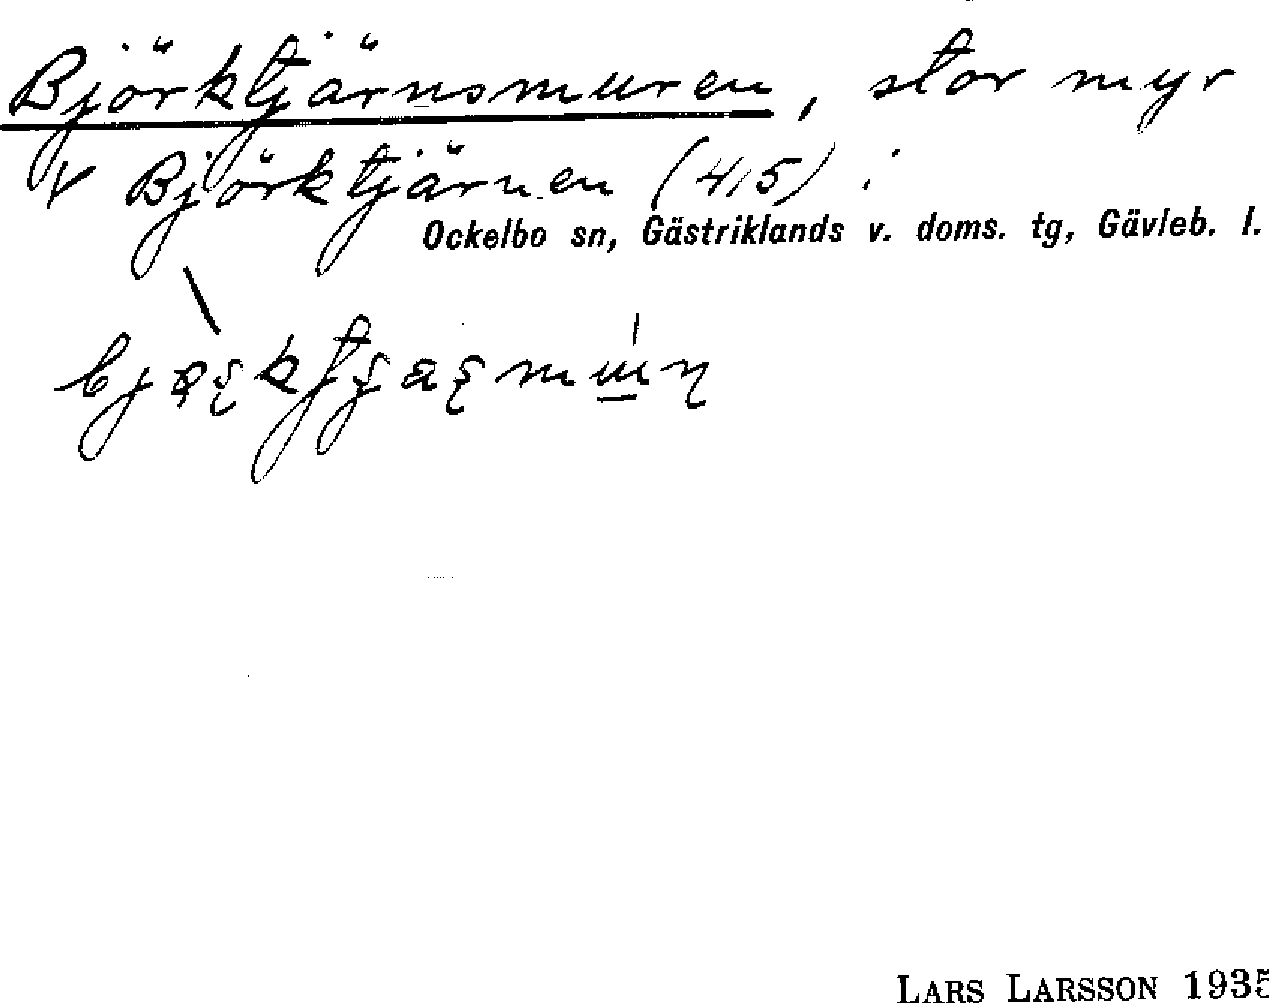 Björktjärnsmuren, stor myr
V Björktjärnen (415) i
Ockelbo sn, Gästriklands v. doms. tg, Gävleb. l.
LARS LARSSON 1935